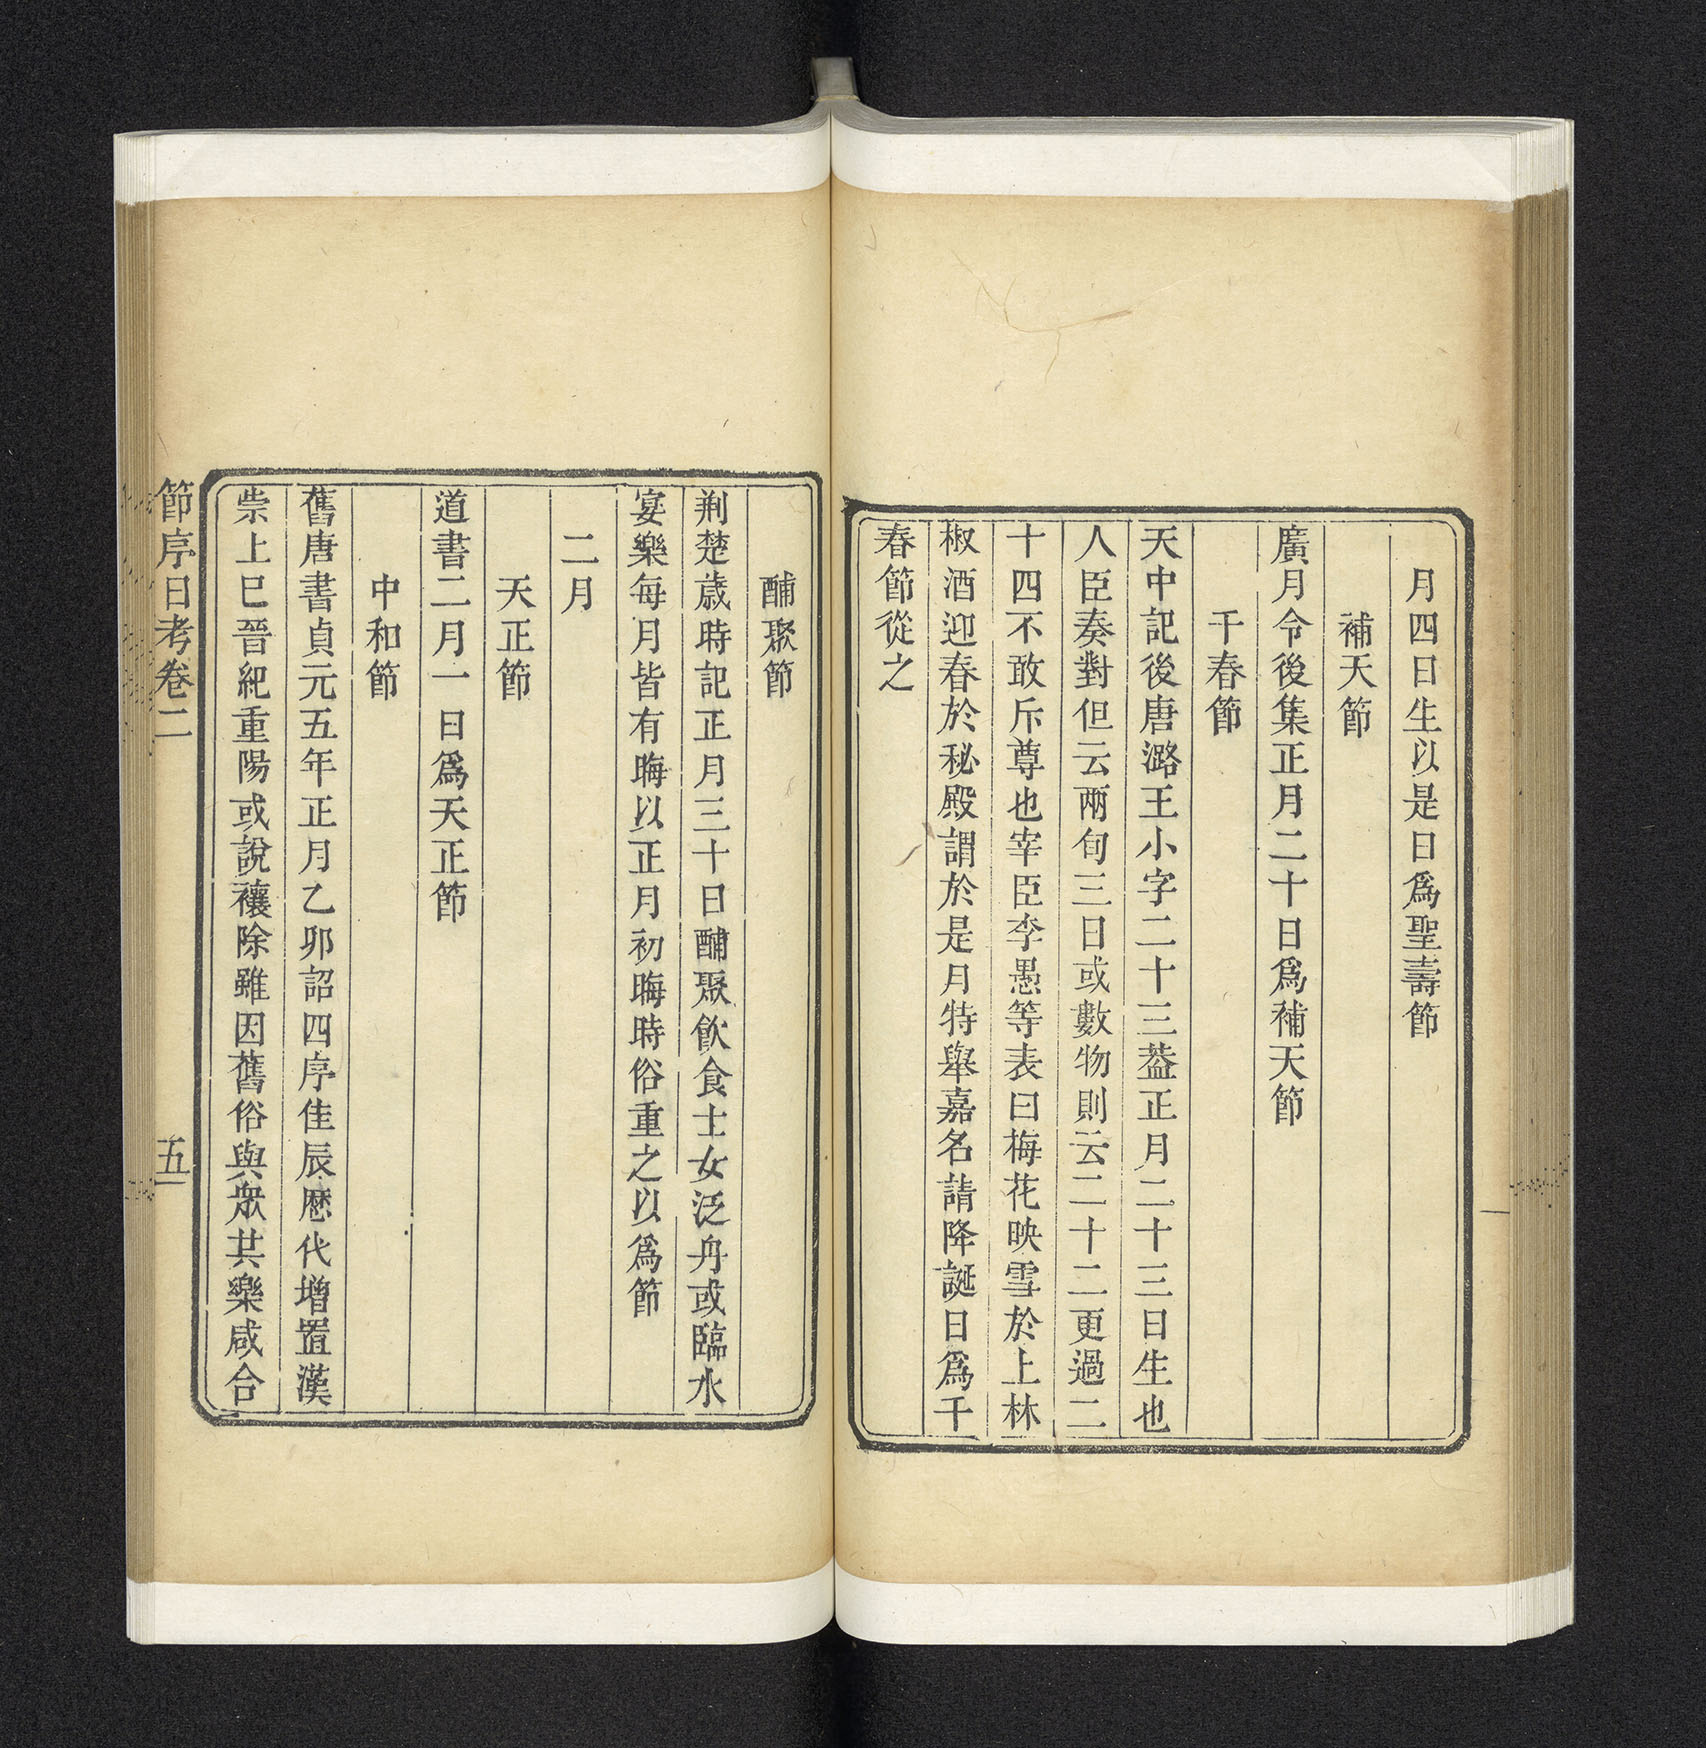 月四日生以是日爲聖壽節
補天節
廣月令後集正月二十日爲補天節
千春節
天中記後唐潞王小字二十三葢正月二十三日生也
人臣奏對但云兩旬三日或數物則云二十二更過二
十四不敢斥尊也宰臣李愚等表曰梅花映雪於上林
椒酒迎春於秘殿謂於是月特舉嘉名請降誕日爲千
春節從之
酺聚節
荆楚歲時記正月三十日酺聚飮食士女泛舟或臨水
宴樂每月皆有晦以正月初晦時俗重之以爲節
二月
天正節
道書二月一日爲天正節
中和節
舊唐書貞元五年正月乙卯詔四序佳辰歷代增置漢
崇上巳晉紀重陽或說禳除雖因舊俗與衆共樂咸合
節序日考卷二
五